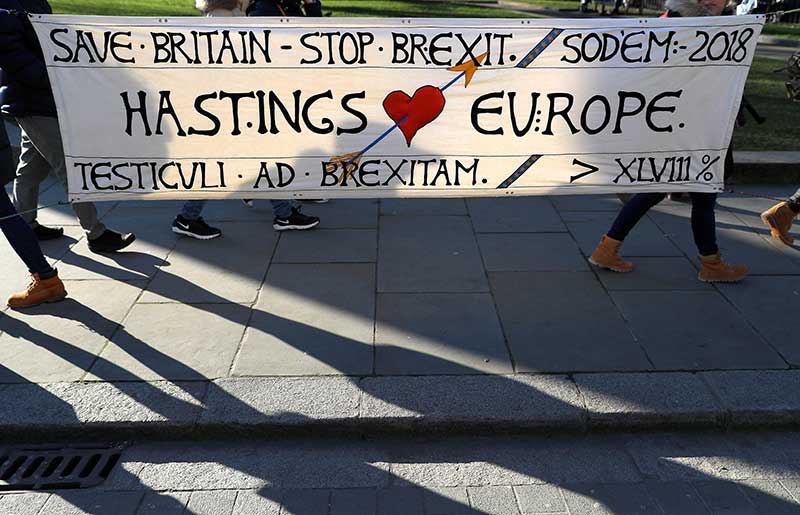 SAVE · BRITAIN - STOP · BREXIT. / SOD'EM:- 2018
HAST.INGS ❤ EU:ROPE.
TESTICULI · AD · BREXITAM. / > XLVIII %